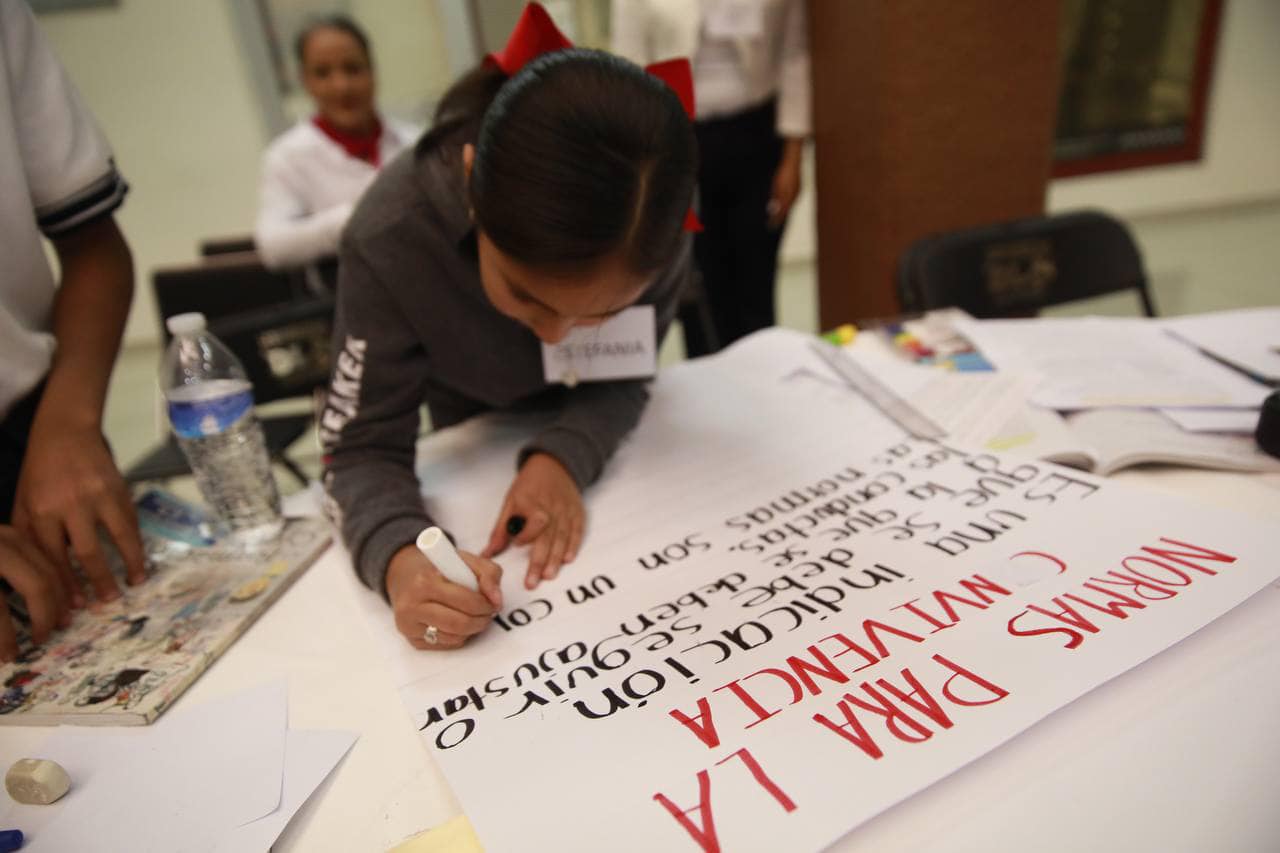 NORMAS PARA LA
C NVIVENCIA
Es una indicación
que se debe seguir o
la que se deben ajustar
las conductas.
as normas son un co
ESTEFANIA